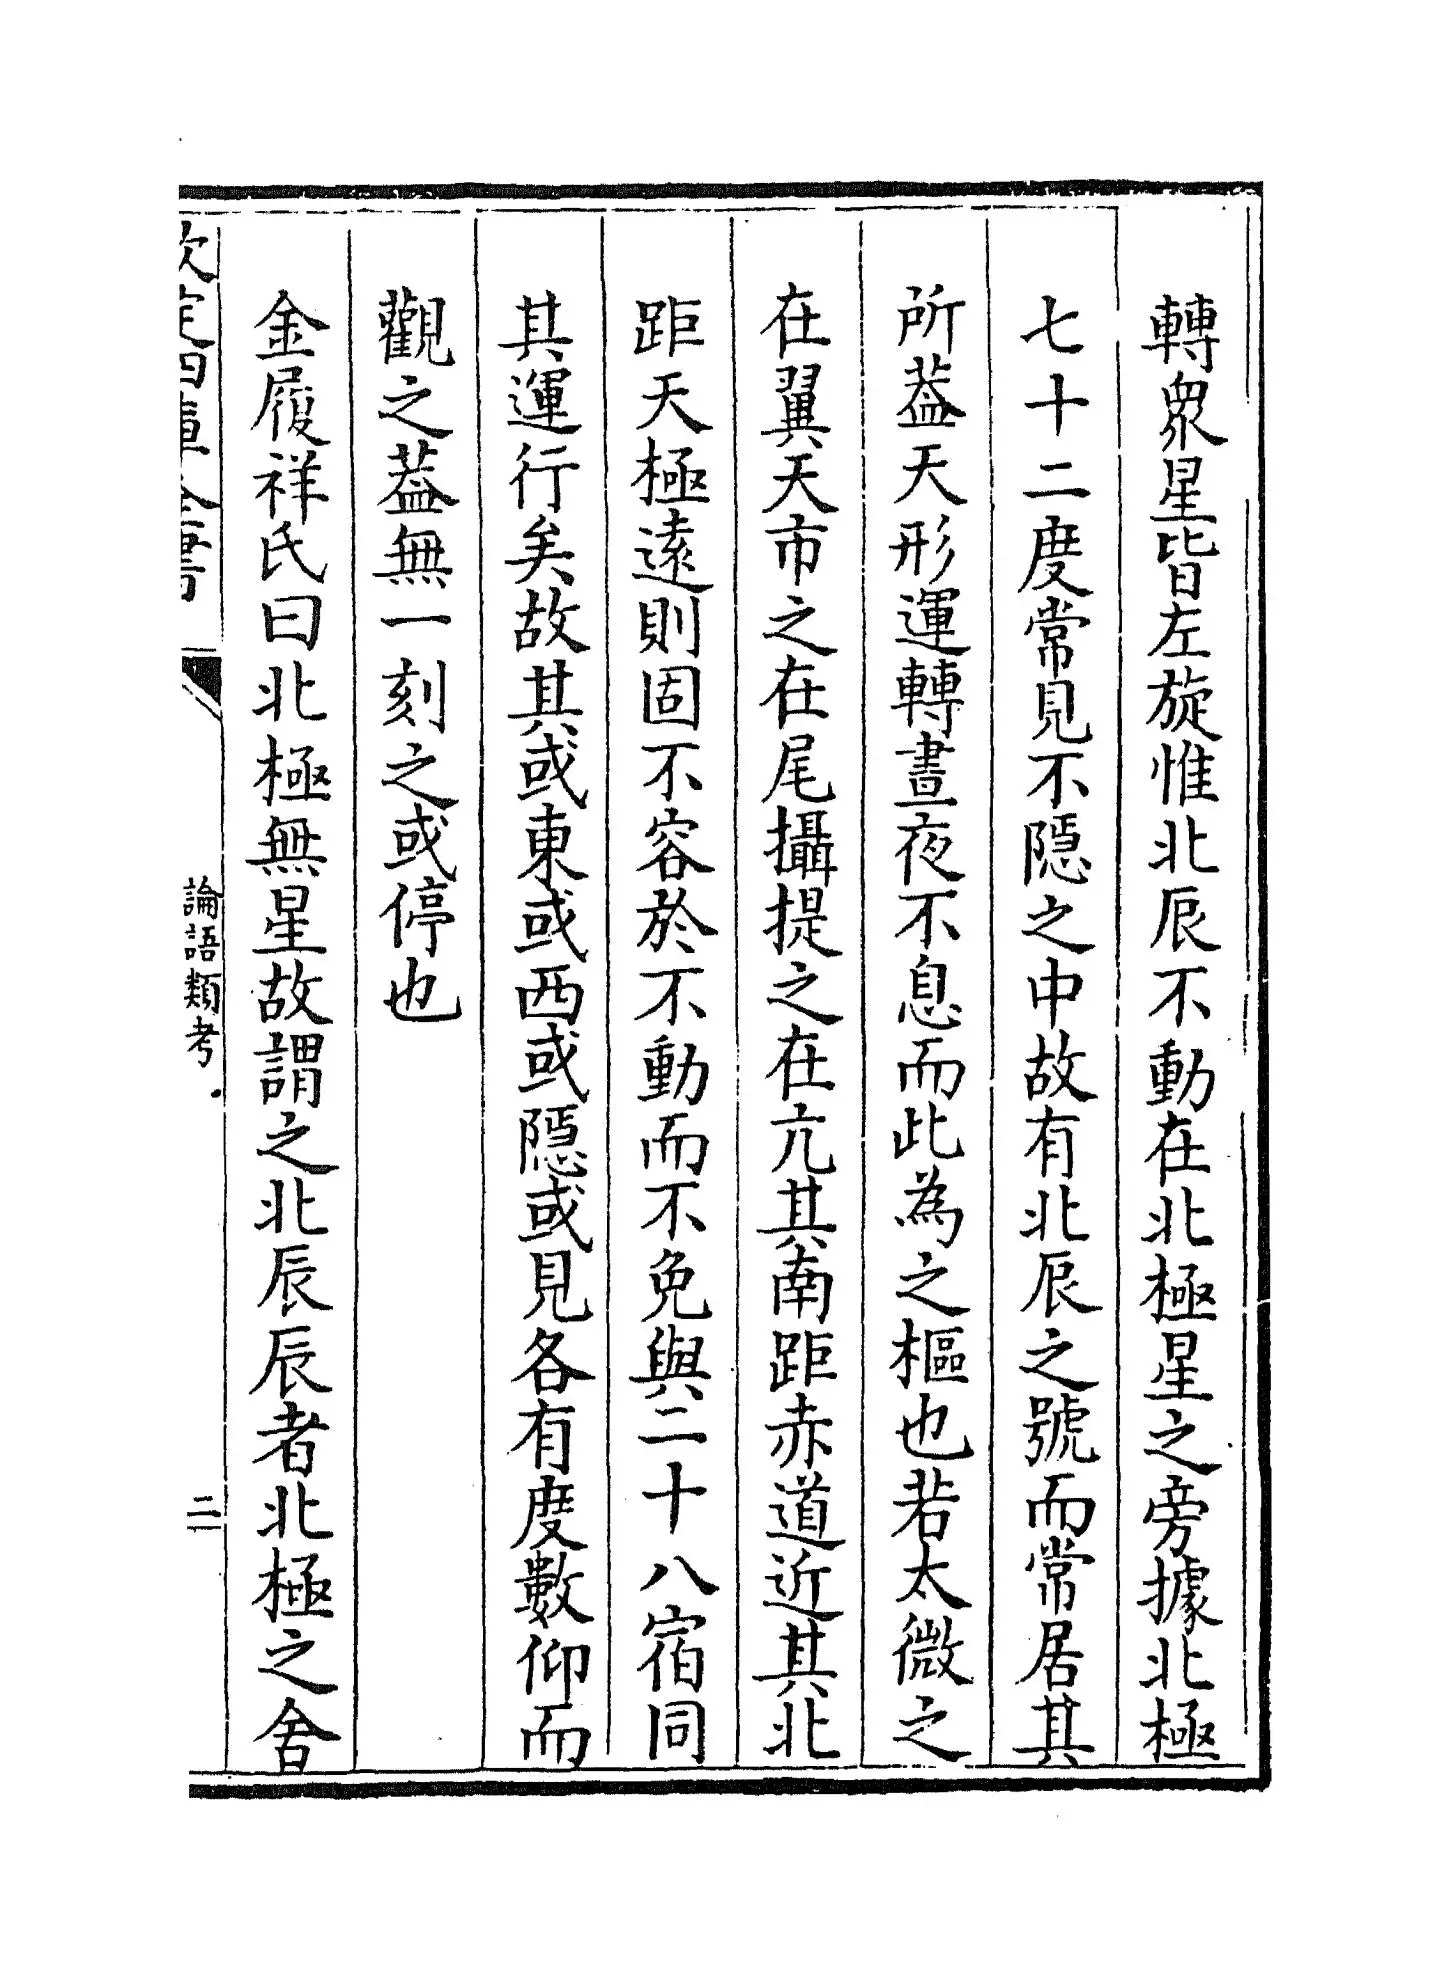 轉衆星皆左旋惟北辰不動在北極星之旁據北極
七十二度常見不隱之中故有北辰之號而常居其
所葢天形運轉晝夜不息而此為之樞也若太微之
在翼天市之在尾攝提之在亢其南距赤道近其北
距天極遠則固不容於不動而不免與二十八宿同
其運行矣故其或東或西或隱或見各有度數仰而
觀之葢無一刻之或停也
金履祥氏曰北極無星故謂之北辰辰者北極之舍
欽定四庫全書
論語類考
二